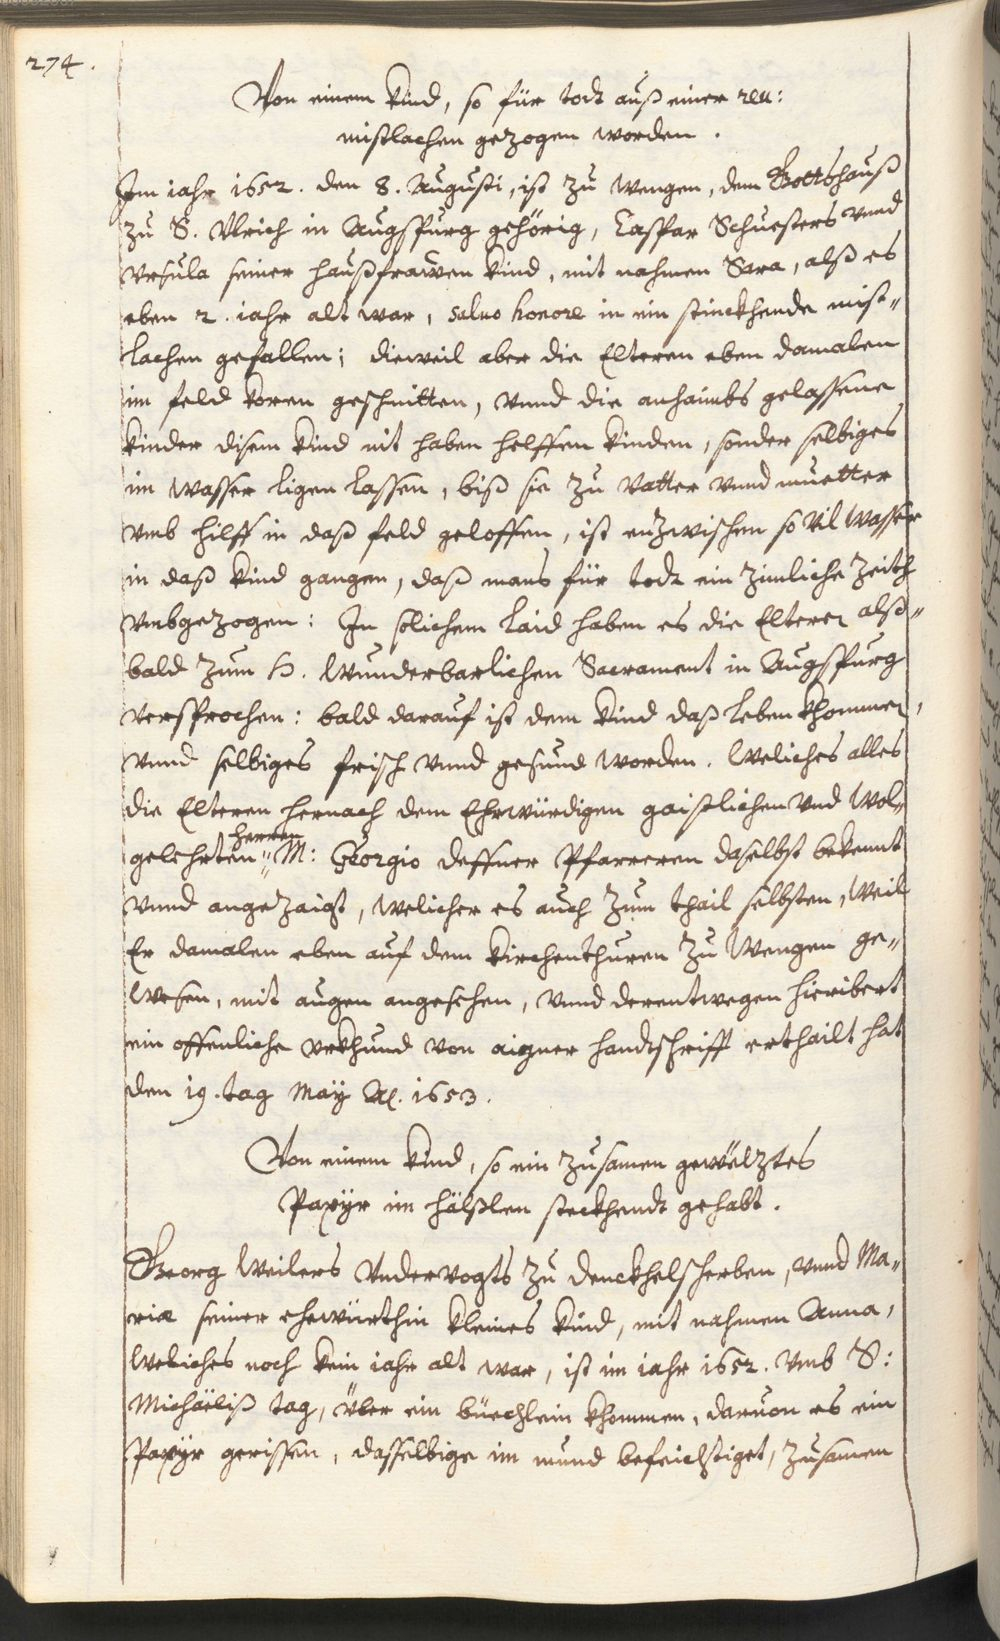 274.
Von einem kind, so für todt auß einer reu:
mistlachen gezogen worden.
Im iahr 1652. den 8. Augusti, ist zu Wengen, dem Gottshauß
zu S. Vlrich in Augspurg gehörig, Caspar Schuesters vnnd
Vrsula seiner haußfrawen kind, mit nahmen Sara, alß es
eben 2. iahr alt war, saluo honore in ein stinckhende mist-
lachen gefallen; dieweil aber die Elteren eben damalen
im feld koren geschnitten, vnnd die anhaimbs gelassene
kinder disem kind nit haben helffen kinden, sonder selbiges
im wasser ligen lassen, biß sie zu vatter vnnd muetter
vmb hilff in daß feld geloffen, ist enzwischen so vil wasser
in daß kind gangen, daß mans für todt ein zimliche zeith
vmbgezogen: In solichem laid haben es die Elteren alß-
bald zum H. Wunderbarlichen Sacrament in Augspurg
versprochen: bald darauf ist dem kind daß leben khommen,
vnnd selbiges frisch vnnd gesund worden. Weliches alles
die Elteren hernach dem Ehrwürdigen gaistlichen vnd Wol-
gelehrten herren M: Georgio deffner Pfarreren daselbst bekennt
vnnd angezaigt, welicher es auch zum thail selbsten, weil
Er damalen eben auf dem kirchenthuren zu Wengen ge-
wesen, mit augen angesehen, vnnd derentwegen hieribert
ein offenliche vrkhund von aigner handtschrifft erthailt hat
den 19. tag Maÿ A. 1653.
Von einem kind, so ein zusamen gewëlztes
Papÿr im hälßlen steckhendt gehabt.
Georg Weilers Vndervogts zu denckhelscherben, vnnd Ma-
riæ seiner ehewürthin kleines kind, mit nahmen Anna,
weliches noch kein iahr alt war, ist im iahr 1652. vmb S:
Michäeliß tag, über ein büechlein khommen, daruon es ein
Papÿr gerissen, dasselbige im mund befeichtiget, zusamen